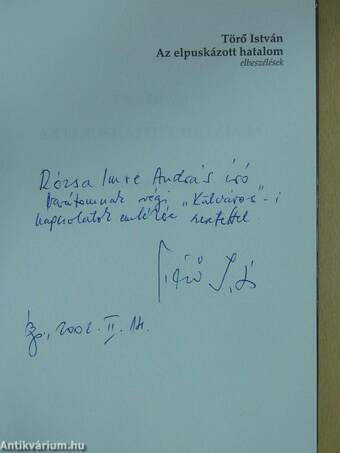 Törő István
Az elpuskázott hatalom
elbeszélések
Rózsa Imre András író
barátomnak régi "Külváros"-i
kapcsolatok emlékére szeretettel
Törő I.
2002. II. 14.
Antikvárium.hu